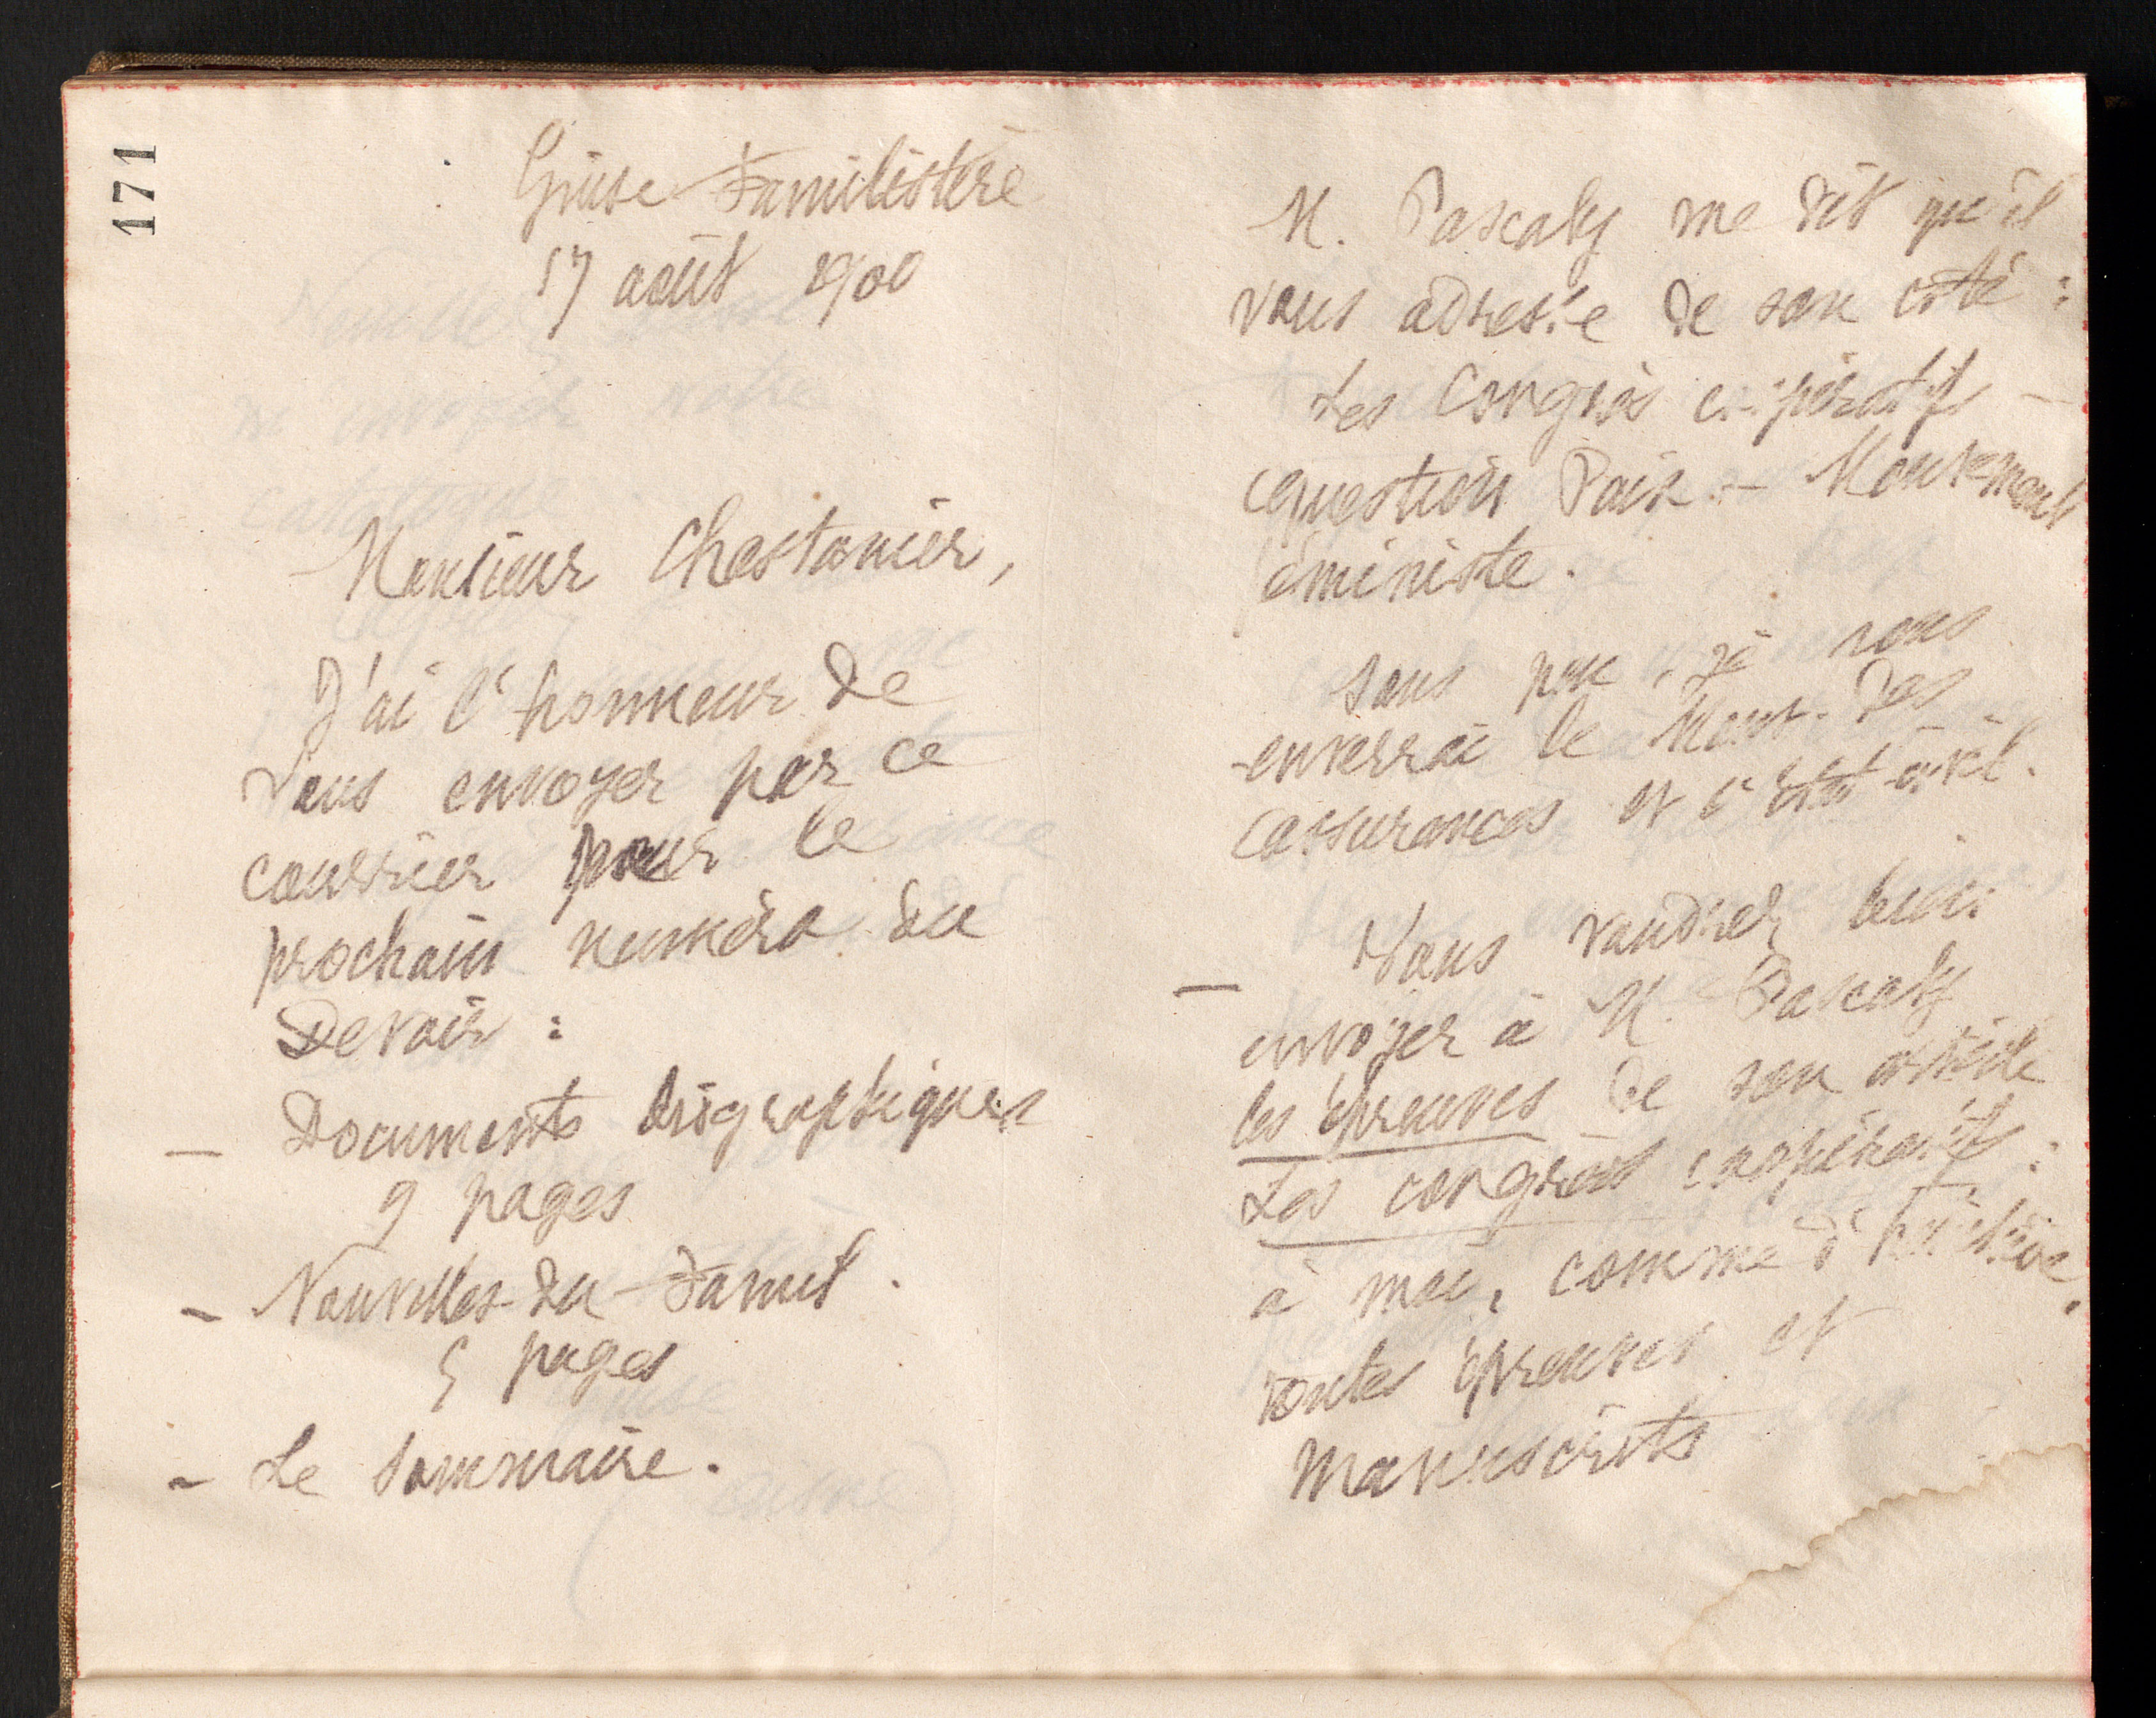 171
Guise Familistère
17 août 1900
Monsieur Chastanier,
J'ai l'honneur de
vous envoyer par ce
courrier pour le
prochain numéro du
Devoir :
— Documents biographiques
9 pages
- Nouvelles du Famil.
5 pages
- Le Sommaire.
M. Pascaly me dit qu'il
vous adresse de son côté :
Les Congrès coopératifs —
question Paix — Mouvement
féministe.
Sous peu, je vous
enverrai le Mouv. des
assurances et l'Etat civil.
— Vous voudrez bien
envoyer à M. Pascaly
les épreuves de son article
Les congrès coopératifs ;
à moi, comme d'habitude,
toutes épreuves et
manuscrits